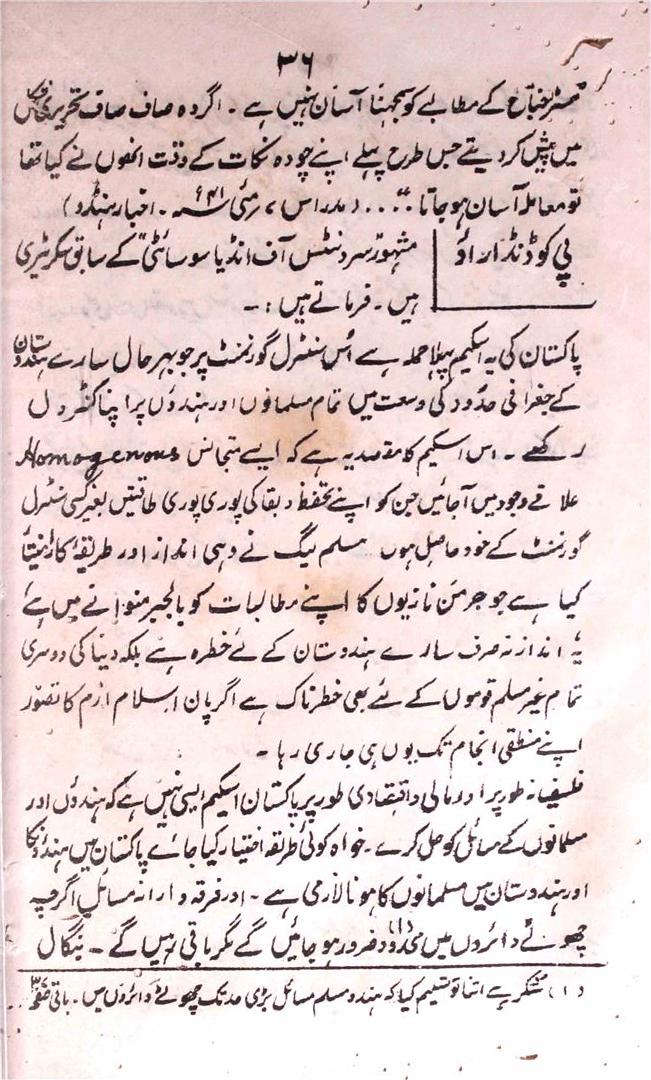 ۳۶
مسٹر جناح کے مطالبے کو سمجھنا آسان نہیں ہے ۔ اگر وہ صاف صاف تحریری شکل
میں پیش کر دیتے جس طرح پہلے اپنے چودہ نکات کے وقت انھوں نے کیا تھا
تو معاملہ آسان ہو جاتا "... (مدراس ۷ مئی ۴۱ء ۔ اخبار ہندو)
پی کو ڈنڈا راؤ | مشہور "سرونٹس آف انڈیا سوسائٹی" کے سابق سکریٹری
ہیں ۔ فرماتے ہیں :۔
پاکستان کی یہ اسکیم پہلا حملہ ہے اُس سنٹرل گورنمنٹ پر جو بہر حال سارے ہندوستان
کے جغرافی حدود کی وسعت میں تمام مسلمانوں اور ہندوؤں پر اپنا کنٹرول
رکھے ۔ اس اسکیم کا مقصد یہ ہے کہ ایسے متجانس Homogenous
علاقے وجود میں آجائیں جن کو اپنے تحفظ و بقا کی پوری پوری طاقتیں بغیر کسی سنٹرل
گورنمنٹ کے خود حاصل ہوں مسلم لیگ نے وہی انداز اور طریقۂ کار اختیار
کیا ہے جو جرمن نازیوں کا اپنے مطالبات کو بالجبر منوانے میں ہے
یہ انداز نہ صرف سارے ہندوستان کے لئے خطرہ ہے بلکہ دنیا کی دوسری
تمام غیر مسلم قوموں کے لئے بھی خطرناک ہے اگر پان اسلام ازم کا تصوّر
اپنے منطقی انجام تک یوں ہی جاری رہا ۔
فلسفیانہ طور پر اور مالی و اقتصادی طور پر پاکستان اسکیم ایسی نہیں ہے کہ ہندوؤں اور
مسلمانوں کے مسائل کو حل کرے ۔ خواہ کوئی طریقہ اختیار کیا جائے پاکستان میں ہندوؤں کا
اور ہندوستان میں مسلمانوں کا ہونا لازمی ہے ۔ اور فرقہ وارانہ مسائل اگرچہ
چھوٹے دائروں میں محدود (۱) ضرور ہو جائیں گے مگر باقی رہیں گے ۔ بنگال
(۱) شکر ہے اتنا تو تسلیم کیا کہ ہندو مسلم مسائل بڑی حد تک چھوٹے دائروں میں ۔ باقی صفحہ ۳۷